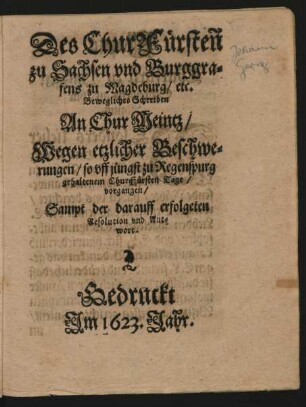 Des ChurFürsten
zu Sachsen vnd Burggra-
fens zu Magdeburg/ etc.
Bewegliches Schreiben
An Chur Meintz/
Wegen etzlicher Beschwe-
rungen/ so vff jüngst zu Regenspurg
gehaltenem ChurFürsten Tage/
vorgangen/
Sampt der darauff erfolgeten
Resolution vnd Ant-
wort.
Gedruckt
Im 1623. Jahr.
Johann
Georg